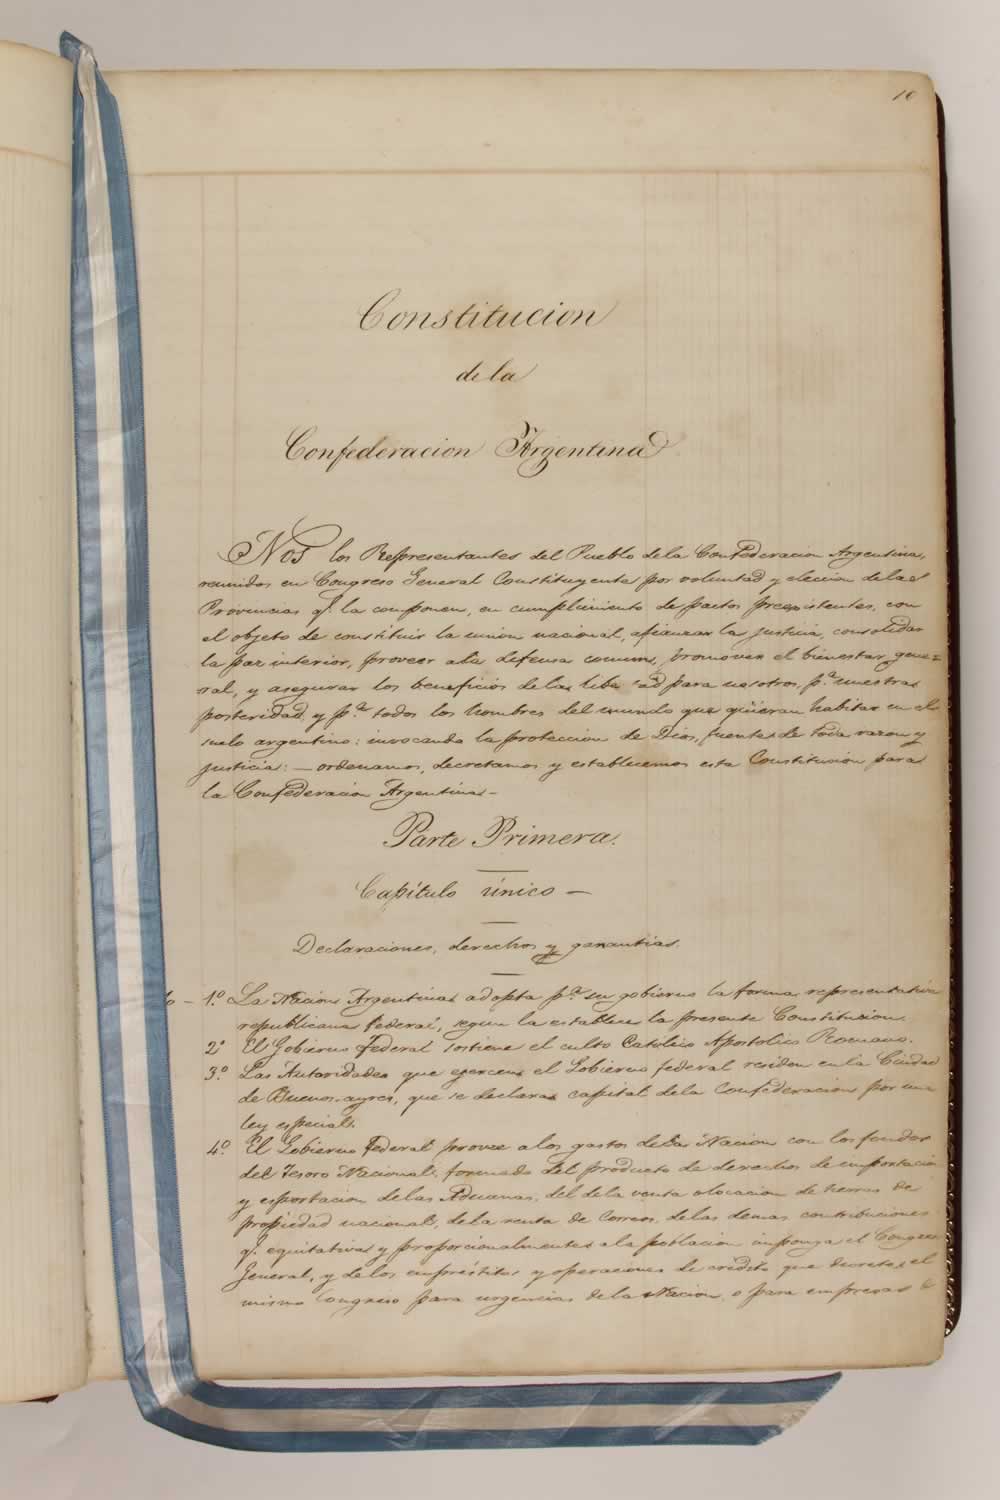 10
Constitucion
de la
Confederacion Argentina
Nos los Representantes del Pueblo de la Confederacion Argentina,
reunidos en Congreso General Constituyente por voluntad y eleccion de las
Provincias q.e la componen, en cumplimiento de pactos preexistentes, con
el objeto de constituir la union nacional, afianzar la justicia, consolidar
la paz interior, proveer a la defensa comun, promover el bienestar gene=
ral, y asegurar los beneficios de la libertad para nosotros, p.a nuestra
posteridad, y p.a todos los hombres del mundo que quieran habitar en el
suelo argentino: invocando la proteccion de Dios, fuente de toda razon y
justicia: — ordenamos, decretamos y establecemos esta Constitucion para
la Confederacion Argentina -
Parte Primera.
Capítulo único —
Declaraciones, derechos y garantias.
1.º La Nacion Argentina adopta p.a su gobierno la forma representativa
republicana federal, segun la establece la presente Constitucion.
2.º El Gobierno Federal sostiene el culto Católico Apostolico Romano.
3.º Las Autoridades que ejercen el Gobierno federal residen en la Ciudad
de Buenos-ayres, que se declara capital de la Confederacion por una
ley especial.
4.º El Gobierno Federal provee a los gastos de la Nacion con los fondos
del Tesoro Nacional, formado del producto de derechos de importacion
y esportacion de las Aduanas, del de la venta o locacion de tierras de
propiedad nacional, de la renta de Correos, de las demas contribuciones
q.e equitativa y proporcionalmente a la poblacion imponga el Congreso
General, y de los empréstitos y operaciones de crédito que decrete el
mismo Congreso para urgencias de la Nacion, o para empresas de